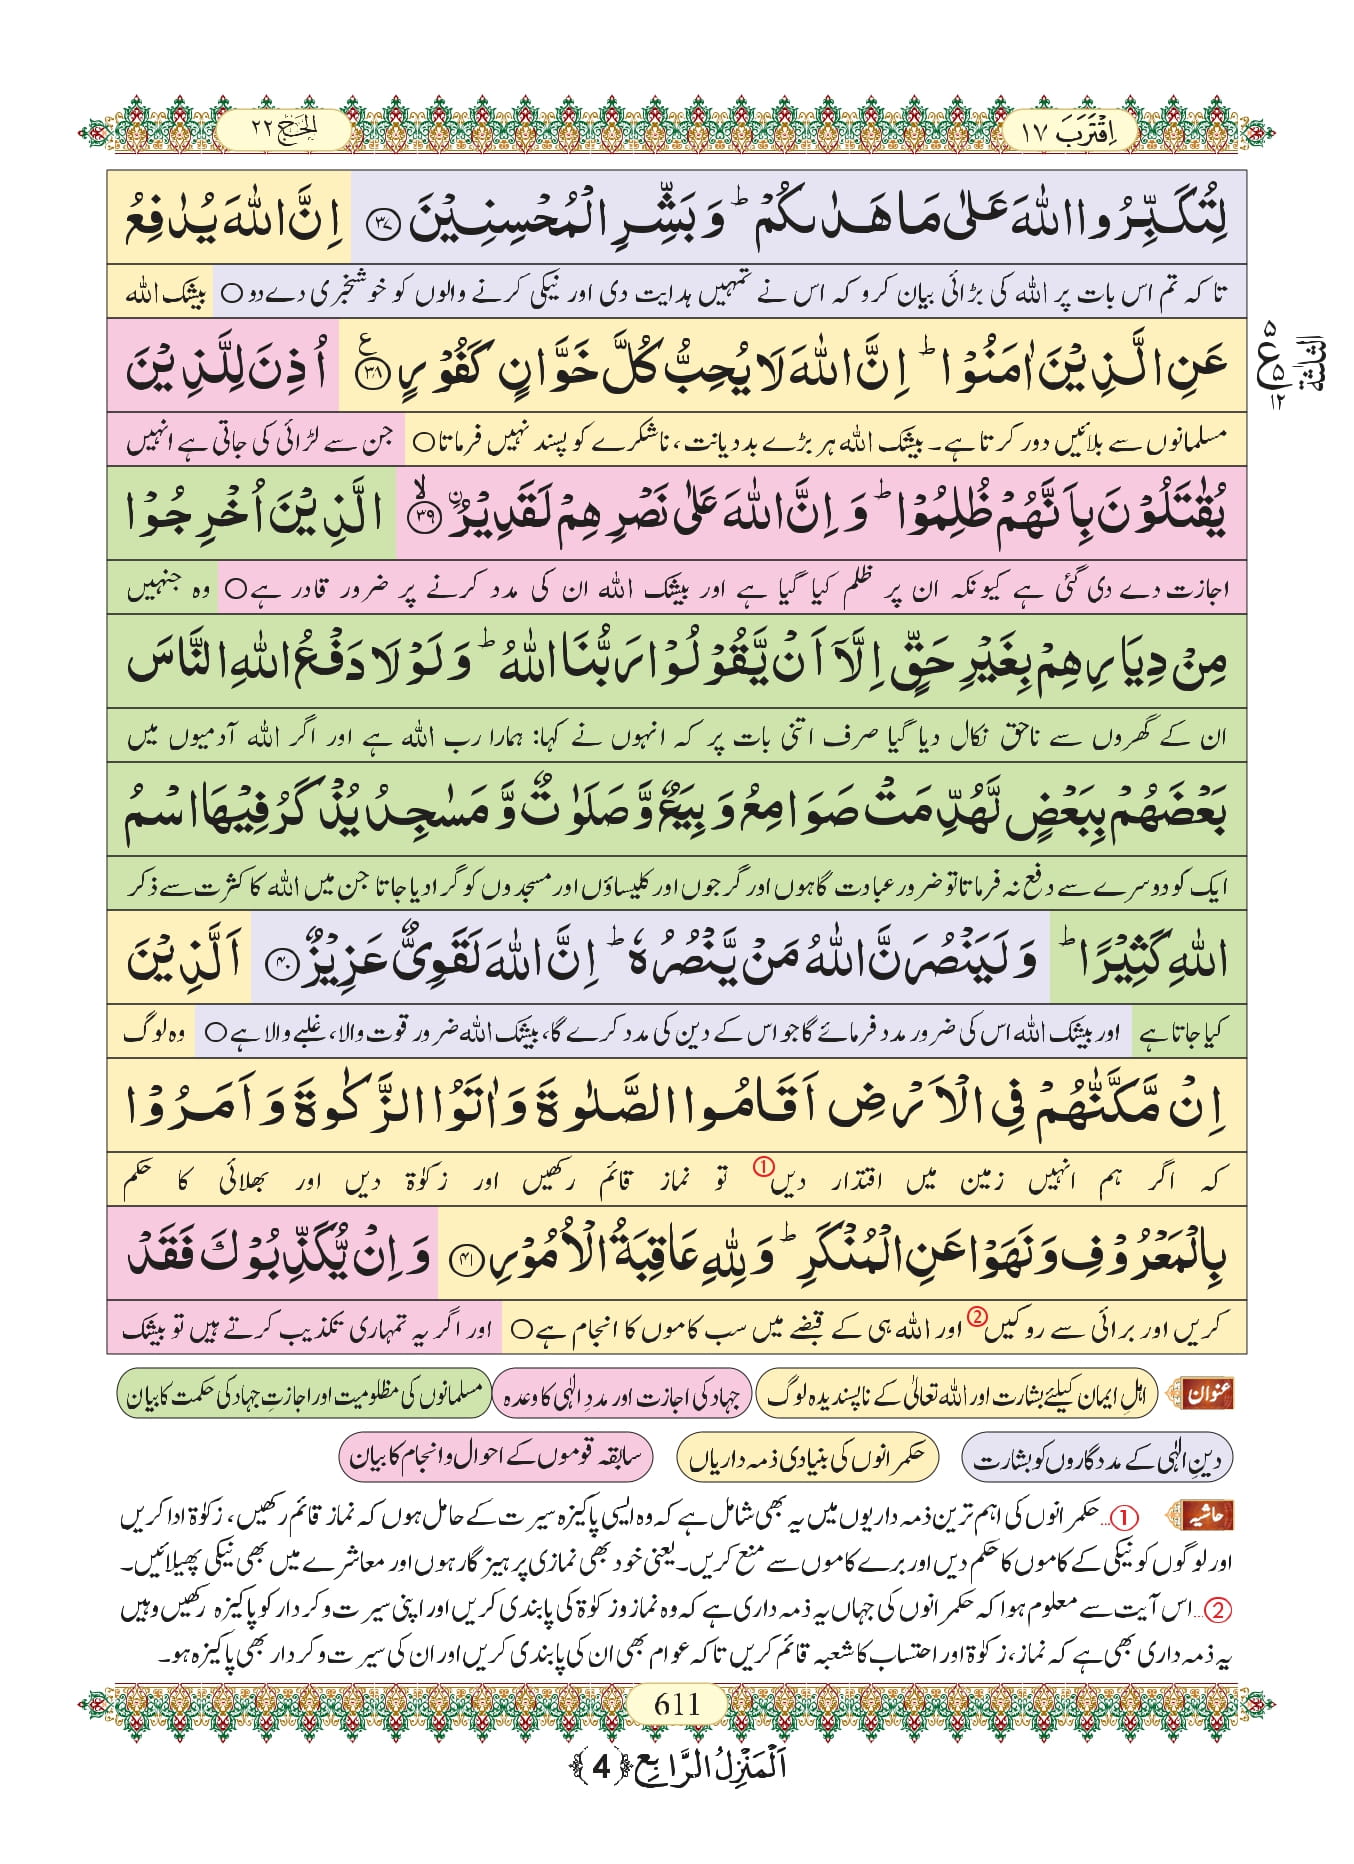 اِقْتَرَبَ ١٧
الحَجّ ٢٢
لِتُكَبِّرُوا اللّٰهَ عَلٰى مَا هَدٰىكُمْ ؕ وَ بَشِّرِ الْمُحْسِنِيْنَ ﴿۳۷﴾ اِنَّ اللّٰهَ يُدٰفِعُ
تا کہ تم اس بات پر اللہ کی بڑائی بیان کرو کہ اس نے تمہیں ہدایت دی اور نیکی کرنے والوں کو خوشخبری دے دو ○ بیشک اللہ
عَنِ الَّذِيْنَ اٰمَنُوْا ؕ اِنَّ اللّٰهَ لَا يُحِبُّ كُلَّ خَوَّانٍ كَفُوْرٍ ﴿۳۸﴾ ع اُذِنَ لِلَّذِيْنَ
۵ ع ۵ ۱۲ الثلثة
مسلمانوں سے بلائیں دور کرتا ہے۔ بیشک اللہ ہر بڑے بد دیانت، ناشکرے کو پسند نہیں فرماتا ○ جن سے لڑائی کی جاتی ہے انہیں
يُقٰتَلُوْنَ بِاَنَّهُمْ ظُلِمُوْا ؕ وَ اِنَّ اللّٰهَ عَلٰى نَصْرِهِمْ لَقَدِيْرُ ۨ ﴿۳۹﴾ ۙ الَّذِيْنَ اُخْرِجُوْا
اجازت دے دی گئی ہے کیونکہ ان پر ظلم کیا گیا ہے اور بیشک اللہ ان کی مدد کرنے پر ضرور قادر ہے ○ وہ جنہیں
مِنْ دِيَارِهِمْ بِغَيْرِ حَقٍّ اِلَّاۤ اَنْ يَّقُوْلُوْا رَبُّنَا اللّٰهُ ؕ وَ لَوْ لَا دَفْعُ اللّٰهِ النَّاسَ
ان کے گھروں سے ناحق نکال دیا گیا صرف اتنی بات پر کہ انہوں نے کہا: ہمارا رب اللہ ہے اور اگر اللہ آدمیوں میں
بَعْضَهُمْ بِبَعْضٍ لَّهُدِّمَتْ صَوَامِعُ وَ بِيَعٌ وَّ صَلَوٰتٌ وَّ مَسٰجِدُ يُذْكَرُ فِيْهَا اسْمُ
ایک کو دوسرے سے دفع نہ فرماتا تو ضرور عبادت گاہوں اور گرجوں اور کلیساؤں اور مسجدوں کو گرا دیا جاتا جن میں اللہ کا کثرت سے ذکر
اللّٰهِ كَثِيْرًا ؕ وَ لَيَنْصُرَنَّ اللّٰهُ مَنْ يَّنْصُرُهٗ ؕ اِنَّ اللّٰهَ لَقَوِيٌّ عَزِيْزٌ ﴿۴۰﴾ اَلَّذِيْنَ
کیا جاتا ہے اور بیشک اللہ اس کی ضرور مدد فرمائے گا جو اس کے دین کی مدد کرے گا، بیشک اللہ ضرور قوت والا، غلبے والا ہے ○ وہ لوگ
اِنْ مَّكَّنّٰهُمْ فِي الْاَرْضِ اَقَامُوا الصَّلٰوةَ وَ اٰتَوُا الزَّكٰوةَ وَ اَمَرُوْا
کہ اگر ہم انہیں زمین میں اقتدار دیں ① تو نماز قائم رکھیں اور زکوٰۃ دیں اور بھلائی کا حکم
بِالْمَعْرُوْفِ وَ نَهَوْا عَنِ الْمُنْكَرِ ؕ وَ لِلّٰهِ عَاقِبَةُ الْاُمُوْرِ ﴿۴۱﴾ وَ اِنْ يُّكَذِّبُوْكَ فَقَدْ
کریں اور برائی سے روکیں ② اور اللہ ہی کے قبضے میں سب کاموں کا انجام ہے ○ اور اگر یہ تمہاری تکذیب کرتے ہیں تو بیشک
عنوان اہلِ ایمان کیلئے بشارت اور اللہ تعالیٰ کے ناپسندیدہ لوگ جہاد کی اجازت اور مددِ الٰہی کا وعدہ مسلمانوں کی مظلومیت اور اجازتِ جہاد کی حکمت کا بیان
دینِ الٰہی کے مددگاروں کو بشارت حکمرانوں کی بنیادی ذمہ داریاں سابقہ قوموں کے احوال و انجام کا بیان
حاشیہ ①... حکمرانوں کی اہم ترین ذمہ داریوں میں یہ بھی شامل ہے کہ وہ ایسی پاکیزہ سیرت کے حامل ہوں کہ نماز قائم رکھیں، زکوٰۃ ادا کریں
اور لوگوں کو نیکی کے کاموں کا حکم دیں اور برے کاموں سے منع کریں۔ یعنی خود بھی نمازی پرہیزگار ہوں اور معاشرے میں بھی نیکی پھیلائیں۔
②... اس آیت سے معلوم ہوا کہ حکمرانوں کی جہاں یہ ذمہ داری ہے کہ وہ نماز و زکوٰۃ کی پابندی کریں اور اپنی سیرت و کردار کو پاکیزہ رکھیں وہیں
یہ ذمہ داری بھی ہے کہ نماز، زکوٰۃ اور احتساب کا شعبہ قائم کریں تا کہ عوام بھی ان کی پابندی کریں اور ان کی سیرت و کردار بھی پاکیزہ ہو۔
611
اَلْمَنْزِلُ الرَّابِع ﴿4﴾